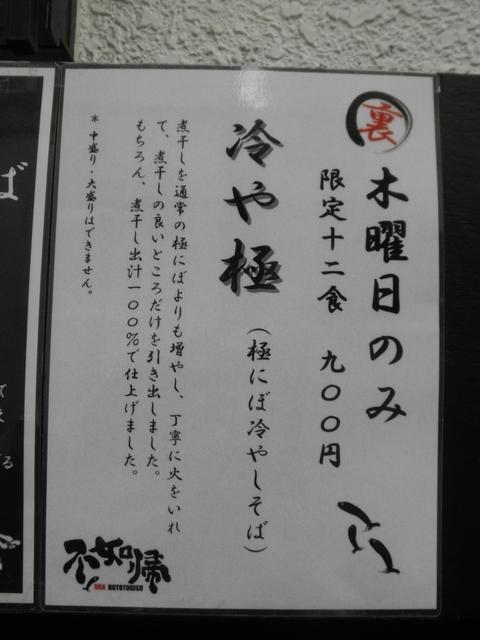 裏
木曜日のみ
限定十二食 九〇〇円
冷や極
(極にぼ冷やしそば)
煮干しを通常の極にぼよりも増やし、丁寧に火をいれ
て、煮干しの良いところだけを引き出しました。
もちろん、煮干し出汁一〇〇%で仕上げました。
* 中盛り・大盛りはできません。
不如帰
URA HOTOTOGISU
ば